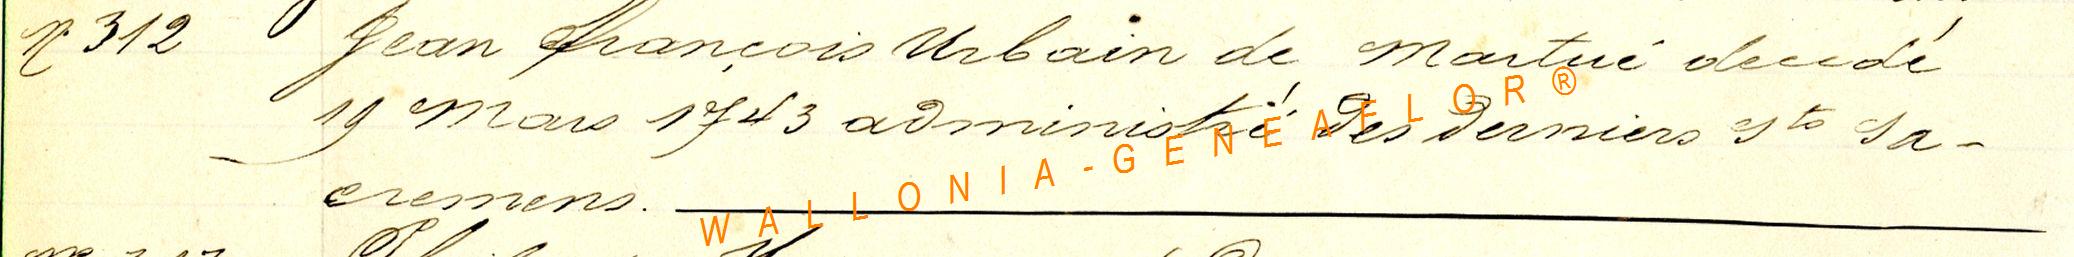 N° 312 Jean françois Urbain de Martué decedé
19 Mars 1743 administré des derniers Sts Sa-
cremens.
WALLONIA-GENEAFLOR®